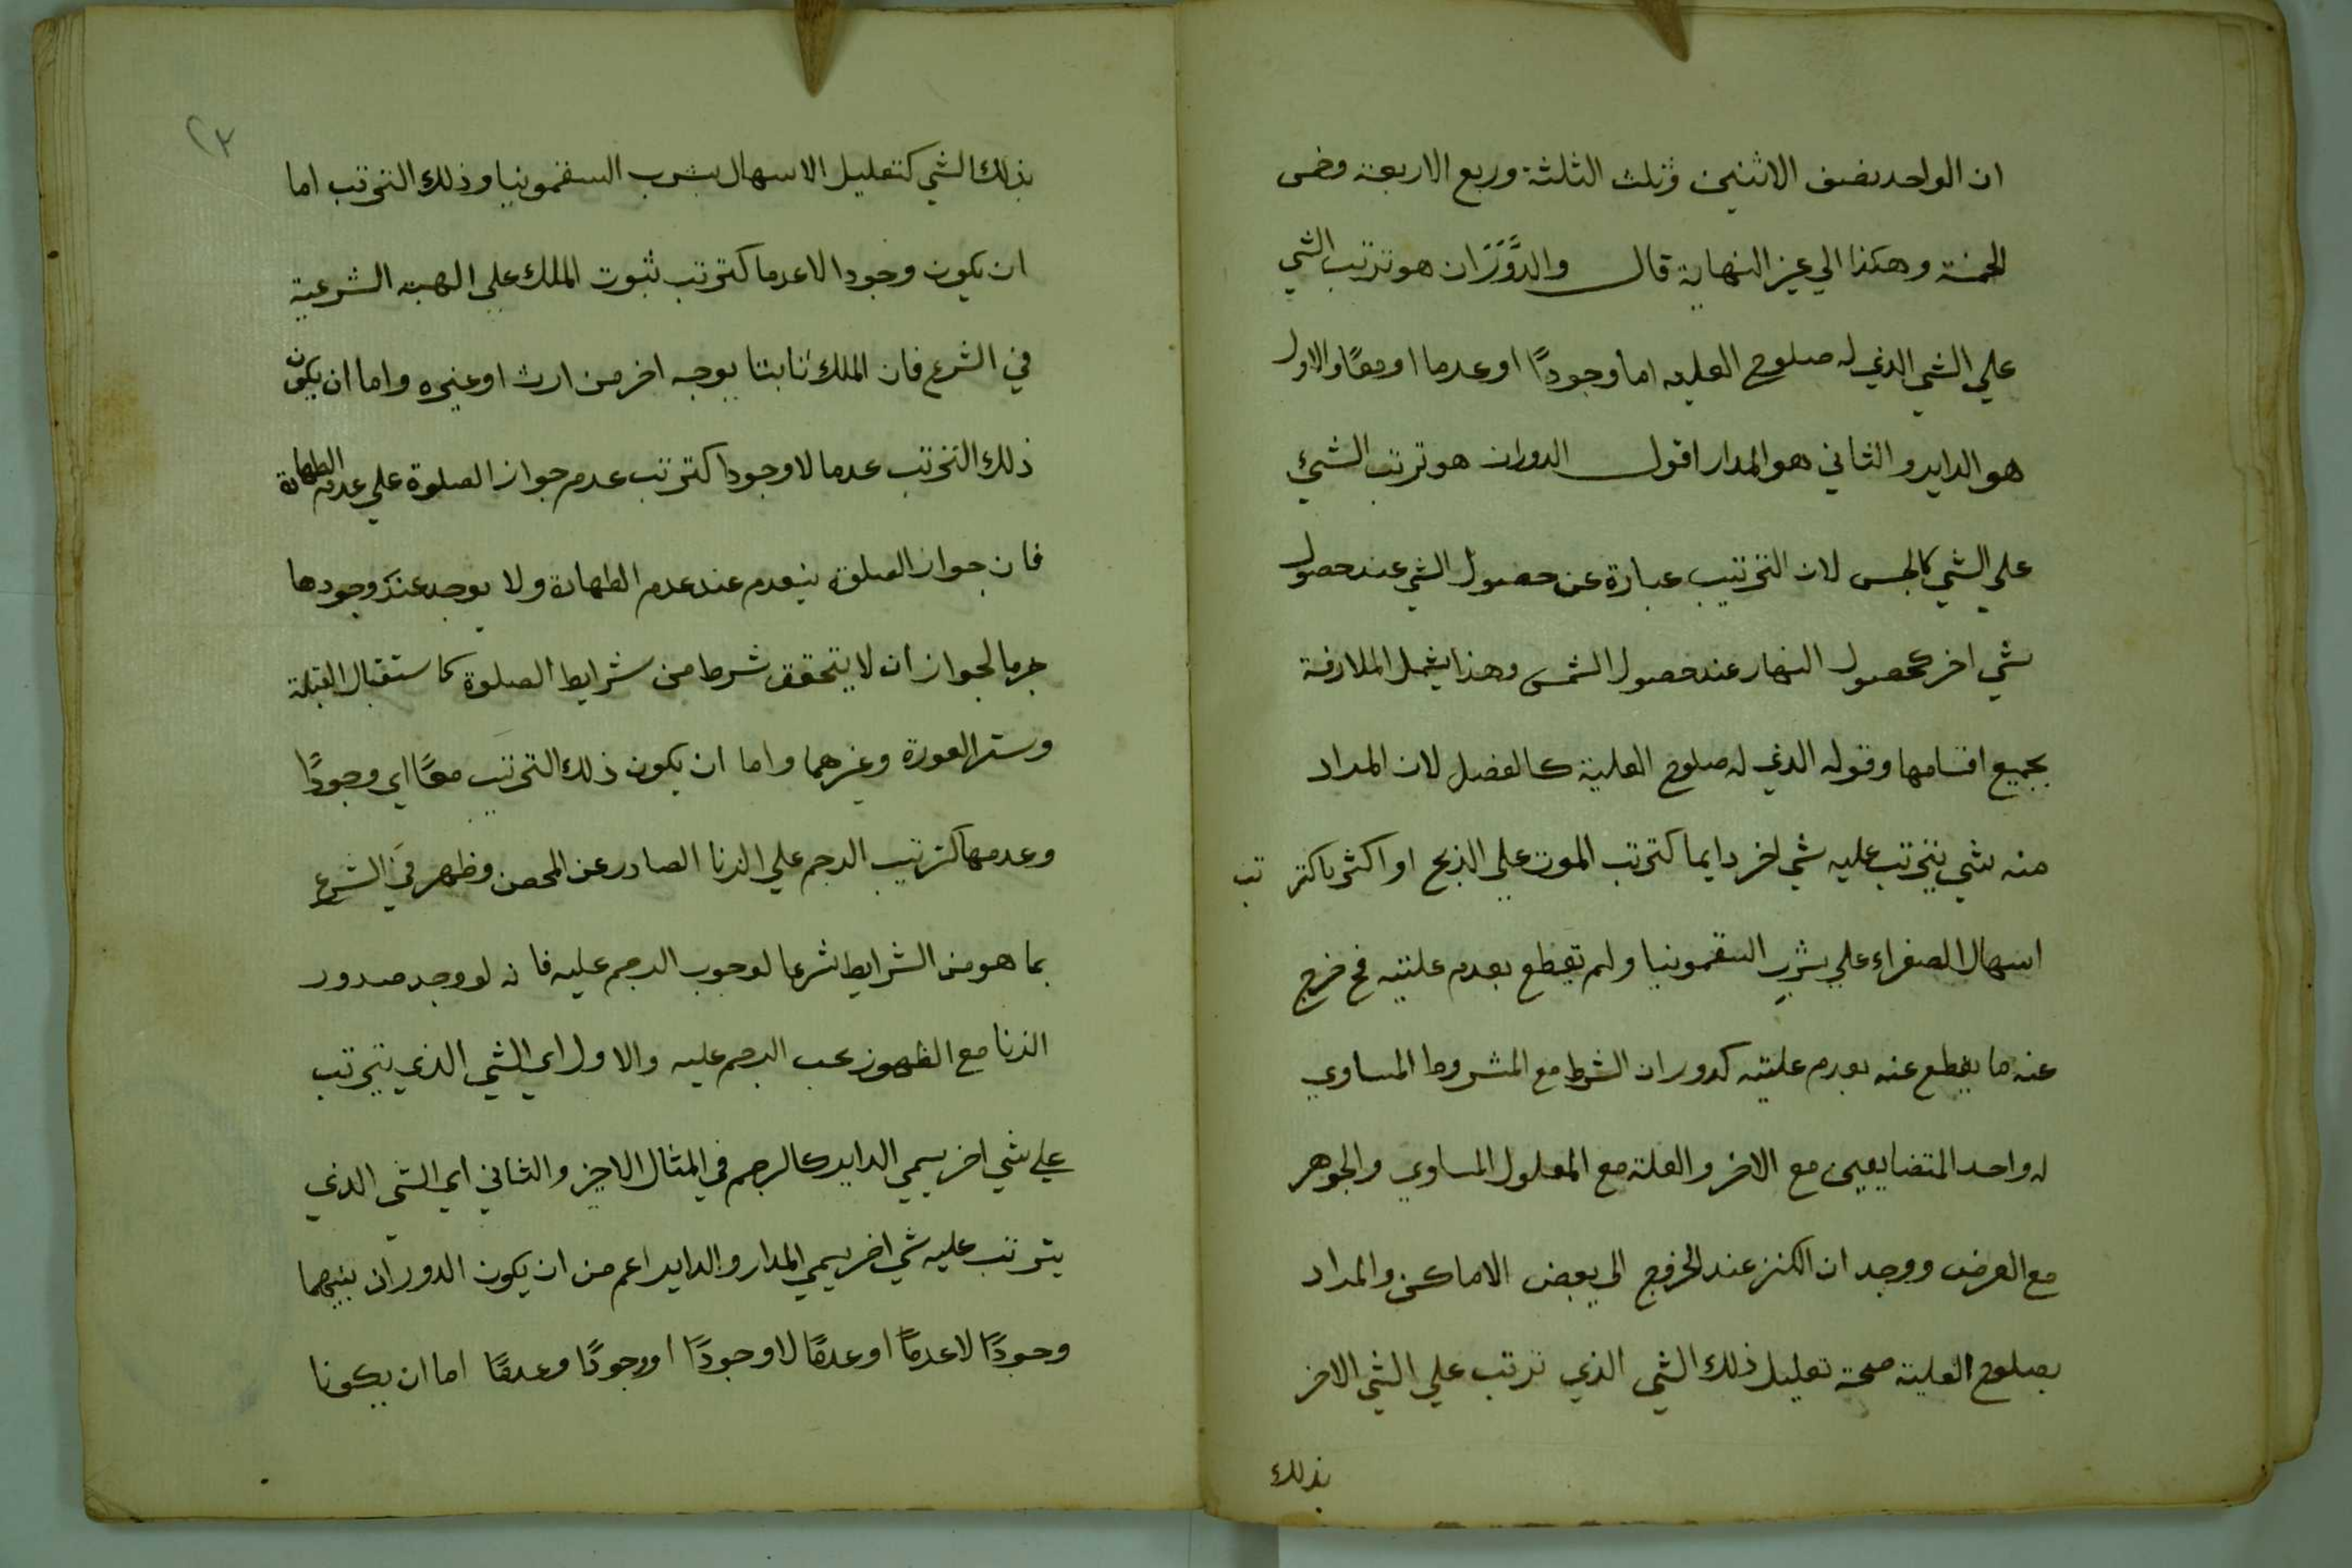 ان الواحد نصف الاثنين وثلث الثلثة وربع الاربعة وخمس
الخمسة وهكذا الي غير النهاية قال والدَّوَرَان هو ترتب الشي
علي الشي الذي له صلوح العلية اما وجودًا او عدما او معًا والاول
هو الداير والثاني هو المدار اقول الدوران هو ترتب الشيئ
علي الشي كالجنس لان الترتيب عبارة عن حصول الشي عند حصول
شي اخر كحصول النهار عند حصول الشمس وهذا يشمل الملازمة
بجميع اقسامها وقوله الذي له صلوح العلية كالفصل لان المراد
منه شي يترتب عليه شي اخر دايما كترتب الموت علي الذبح او اكثريا كترتب
اسهال الصفراء علي شرب السقمونيا ولم يقطع بعدم عليته فح خرج
عنه ما يقطع عنه بعدم عليته كدوران الشرط مع المشروط المساوي
له واحد المتضايفين مع الاخر والعلة مع المعلول المساوي والجوهر
مع العرض ووجدان الكنز عند الخروج الي بعض الاماكن والمراد
بصلوح العلية صحة تعليل ذلك الشي الذي ترتب علي الشي الاخر
بذلك
٢٣
بذلك الشي كتعليل الاسهال بشرب السقمونيا وذلك الترتب اما
ان يكون وجودا لا عدما كترتب ثبوت الملك علي الهبة الشرعية
في الشرع فان الملك ثابتا بوجه اخر من ارث او غيره واما ان يكون
ذلك الترتب عدما لا وجودا كترتب عدم جواز الصلوة علي عدم الطهارة
فان جواز الصلوة ينعدم عند عدم الطهارة ولا يوجد عند وجودها
جزما لجواز ان لا يتحقق شرط من شرايط الصلوة كاستقبال القبلة
وستر العورة وغيرهما واما ان يكون ذلك الترتيب معًا اي وجودًا
وعدمها كترتيب الرجم علي الزنا الصادر عن المحصن وظهر في الشرع
بما هو من الشرايط شرعا لوجوب الرجم عليه فانه لو وجد صدور
الزنا مع الظهور يجب الرجم عليه والاول اي الشي الذي يترتب
علي شي اخر يسمي الداير كالرجم في المثال الاخير والثاني اي الشي الذي
يترتب عليه شي اخر يسمي المدار والداير اعم من ان يكون الدوران بينهما
وجودًا لا عدمًا او عدمًا لا وجودًا او وجودًا وعدمًا اما ان يكونا